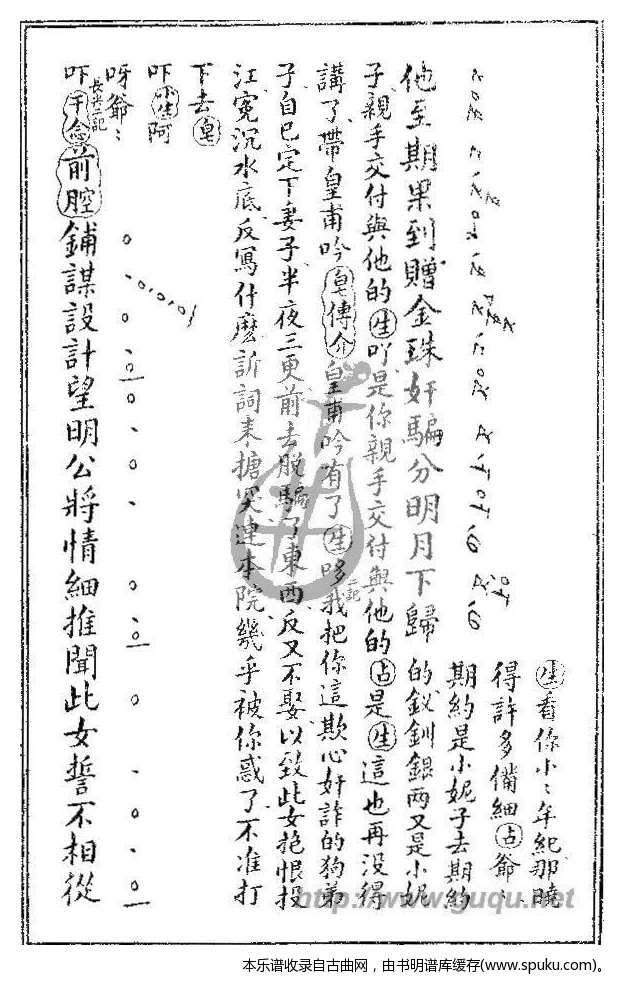 生看你小〻年紀那曉
得許多備細占爺〻
期約是小妮子去期約
他至期果到贈金珠奸騙分明月下歸 的釵釧銀两又是小妮
子親手交付與他的生吖是你親手交付與他的占是生這也再没得
講了帶皇甫吟皂傳介皇甫吟有了生哆二記我把你這欺心奸詐的狗弟
子自已定下妻子半夜三更前去脱騙了東西反又不娶以致此女抱恨投
江寃沉水底反寫什麽訴詞来搪突連本院幾乎被你惑了不准打
下去皂
吓小生阿
呀爺〻
長尖二記
吓干念前腔鋪謀設計望明公將情細推聞此女誓不相從
http://www.guqu.net
本乐谱收录自古曲网，由书明谱库缓存(www.spuku.com)。